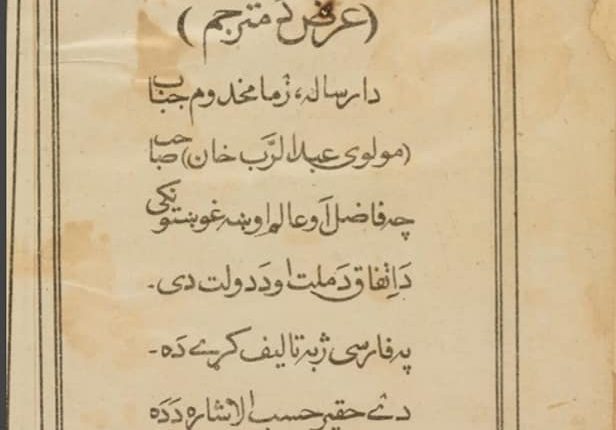 (عرض د مترجم)
دا رساله، ژما مخدوم جناب
(مولوی عبدالرَّب خان) صاحب
چه فاضل اَو عالم او ښه غوښتونکی
دَ اِتفاق دَ ملت او دَ دولت دی۔
په فارسی ژبه تالیف کړے دَه۔
دئے حقیر حسب الاشاره دَده